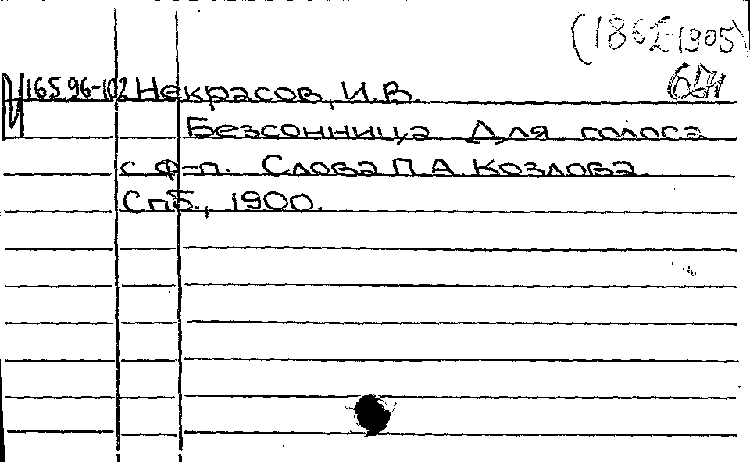 (1862-1905)
165.96-102 Некрасов, И.В.
Безсонница Для голоса
с ф-п. Слова П.А. Козлова.
Спб., 1900.